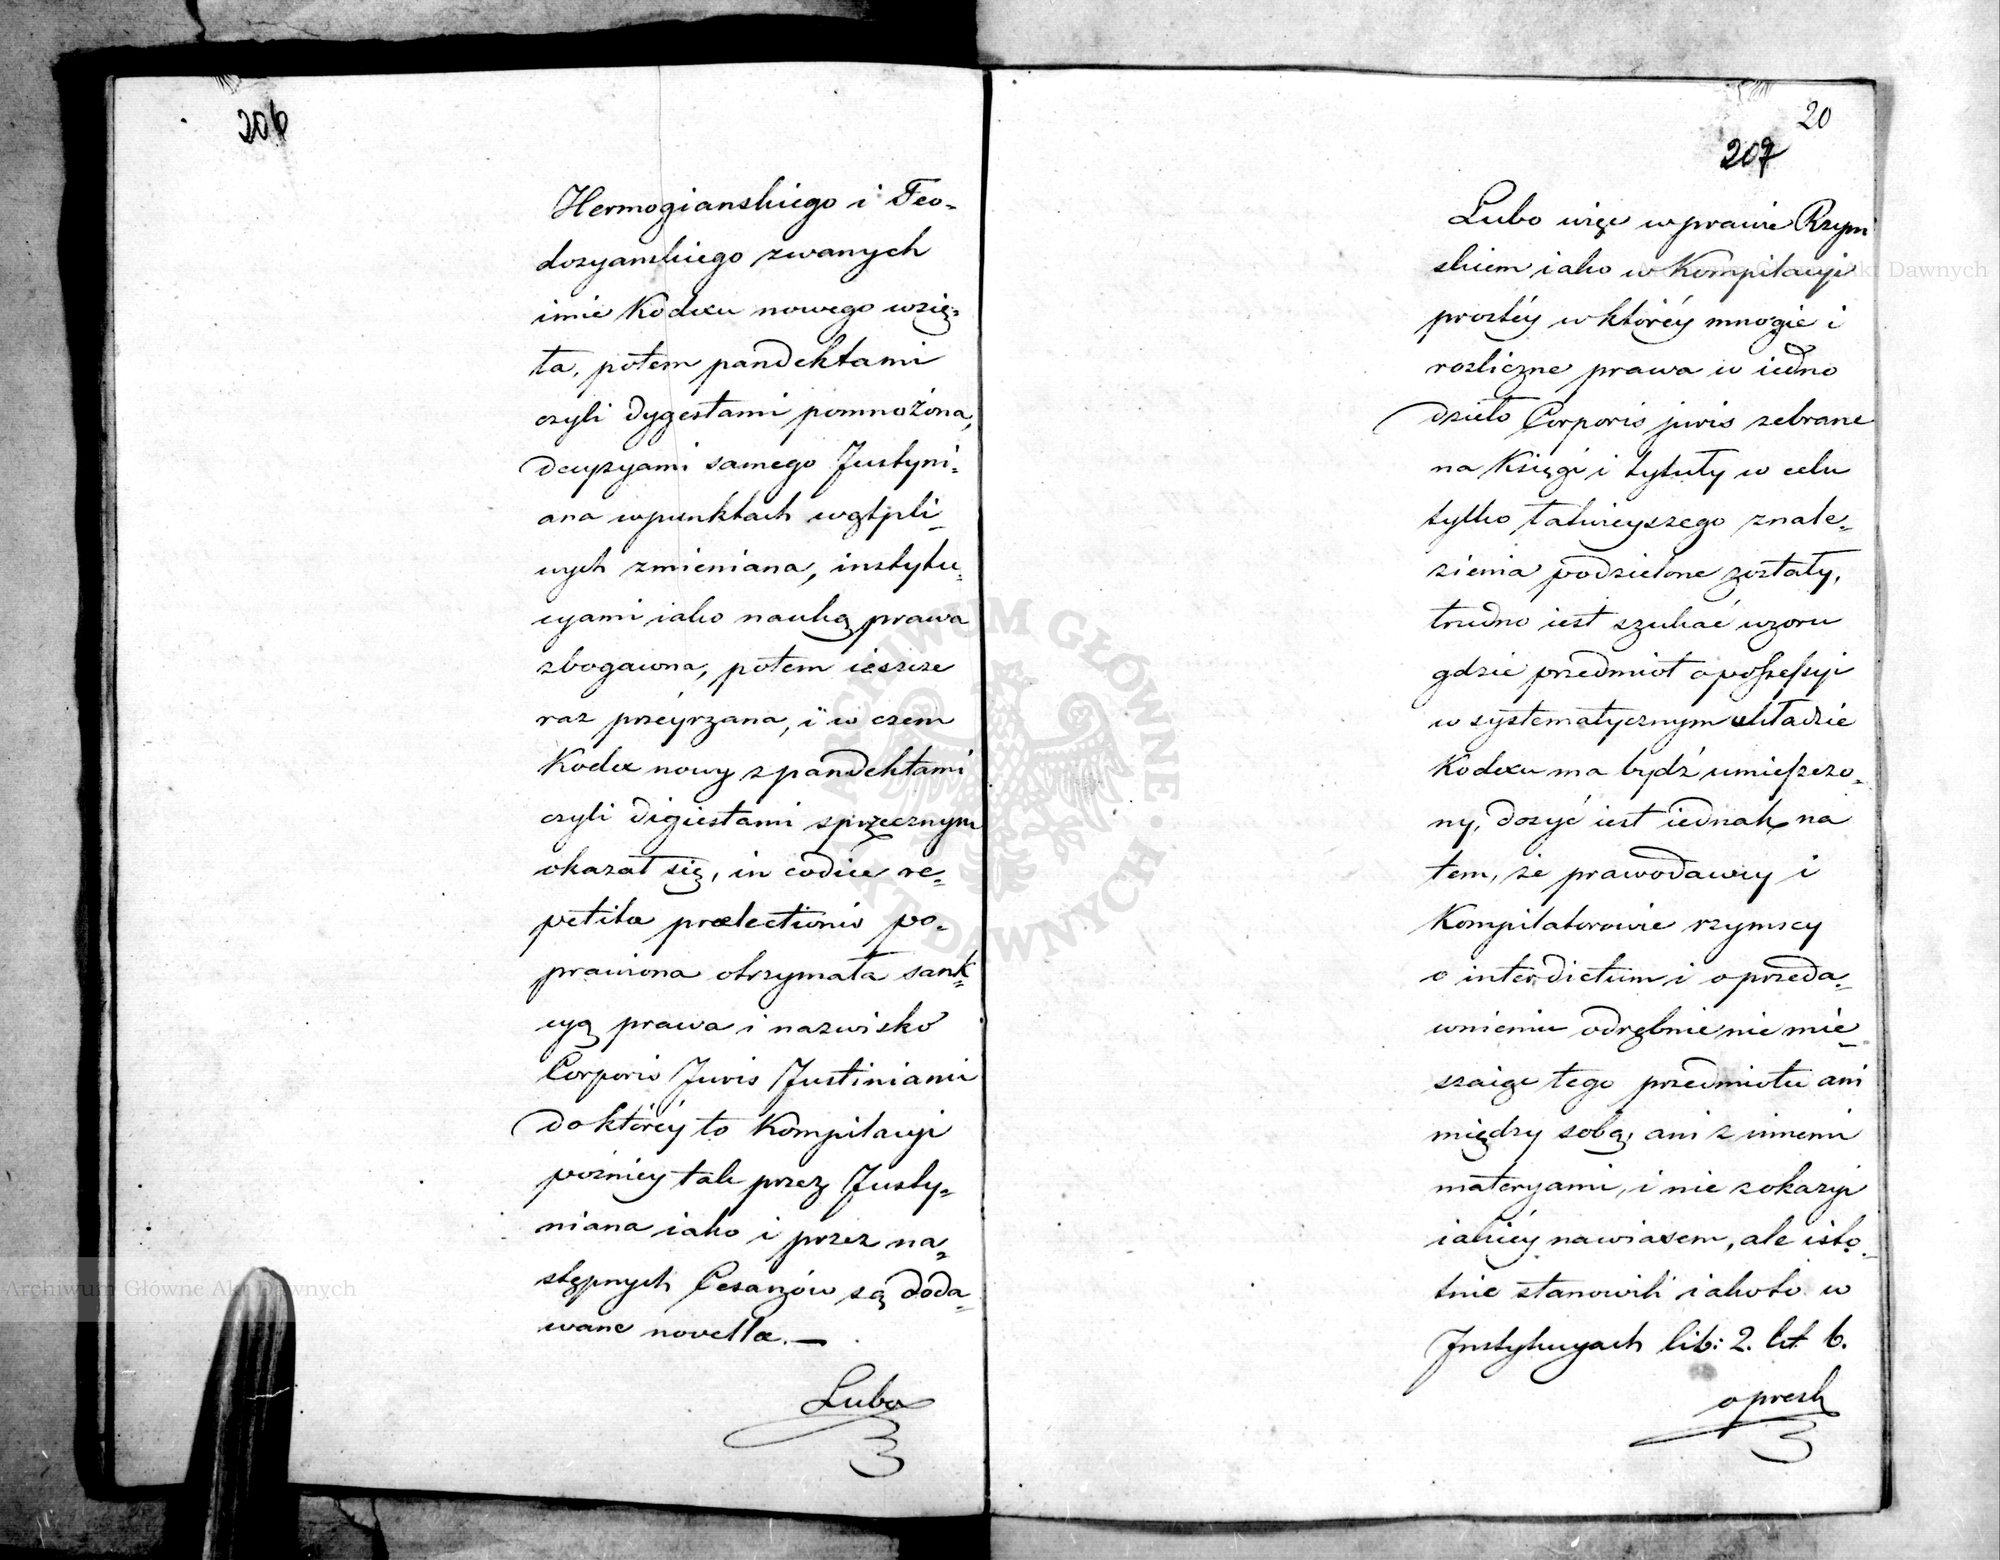 206
Hermogianskiego i Teo-
dozyanskiego zwanych
imie Kodexu nowego wzię-
ta, potem pandektami
czyli dygestami pomnożona,
decyzyami samego Justyni-
ana w punktach wątpli-
wych zmieniana, instytu-
cyami iako nauką prawa
zbogacona, potem ieszcze
raz przeyrzana, i w czem
Kodex nowy z pandektami
czyli digiestami sprzecznym
okazał się, in codice re-
petitæ prælectionis po-
prawiona otrzymała sank-
cyą prawa i nazwisko
Corporis Juris Justiniani
do któréy to Kompilacyi
poźniey tak przez Justy-
niana iako i przez na-
stępnych Cesarzów są doda-
wane novellæ.—
Lubo
20
207
Lubo więc w prawie Rzym
skiem iako w Kompilacyi
prostéy w któréy mnogie i
rozliczne prawa w iedno
dzieło Corporis juris zebrane
na Księgi i tytuły w celu
tylko łatwieyszego znale-
zienia podzielone zostały,
trudno iest szukać wzoru
gdzie przedmiot o possessyi
w systematycznym układzie
Kodexu ma bydź umieszczo-
ny, dosyć iest iednak na
tem, że prawodawcy i
Kompilatorowie rzymscy
o interdictum i o przeda-
wnieniu odrębnie nie mie-
szaiąc tego przedmiotu ani
między sobą, ani z innemi
materyami, i nie z okazyi
iakiéy nawiasem, ale isto-
tnie stanowili iakoto w
Instytucyach lib: 2. tit 6.
o presk
Archiwum Główne Akt Dawnych
Archiwum Główne Akt Dawnych
ARCHIWUM GŁÓWNE AKT DAWNYCH